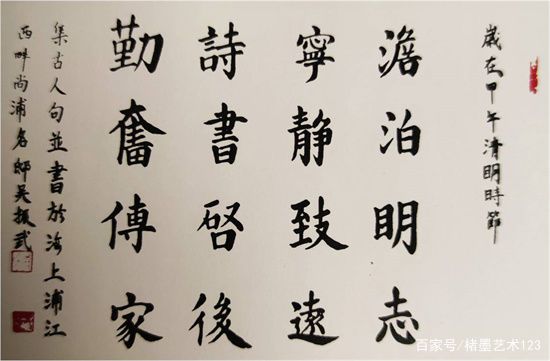 歲在甲午清明時節
澹泊明志
寧靜致遠
詩書啓後
勤奮傳家
集古人句並書於海上浦江
西畔尚浦名邸吴振武
百家号/楮墨艺术123